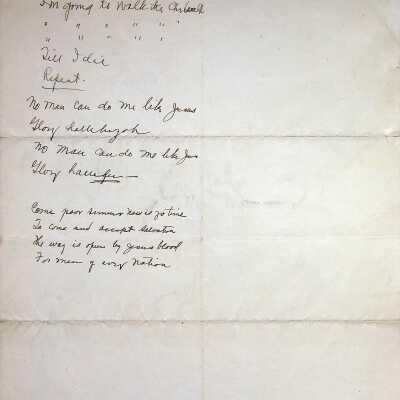 I'm going to walk the
" " " " " "
" " " " "
Till I die
Repeat.
No man can do me like Jesus
Glory hallelujah
No man can do me like Jes
Glory halle
Come poor sinners now is yo time
To come and accept salvation
The way is open by Jesus blood
For men of every nation